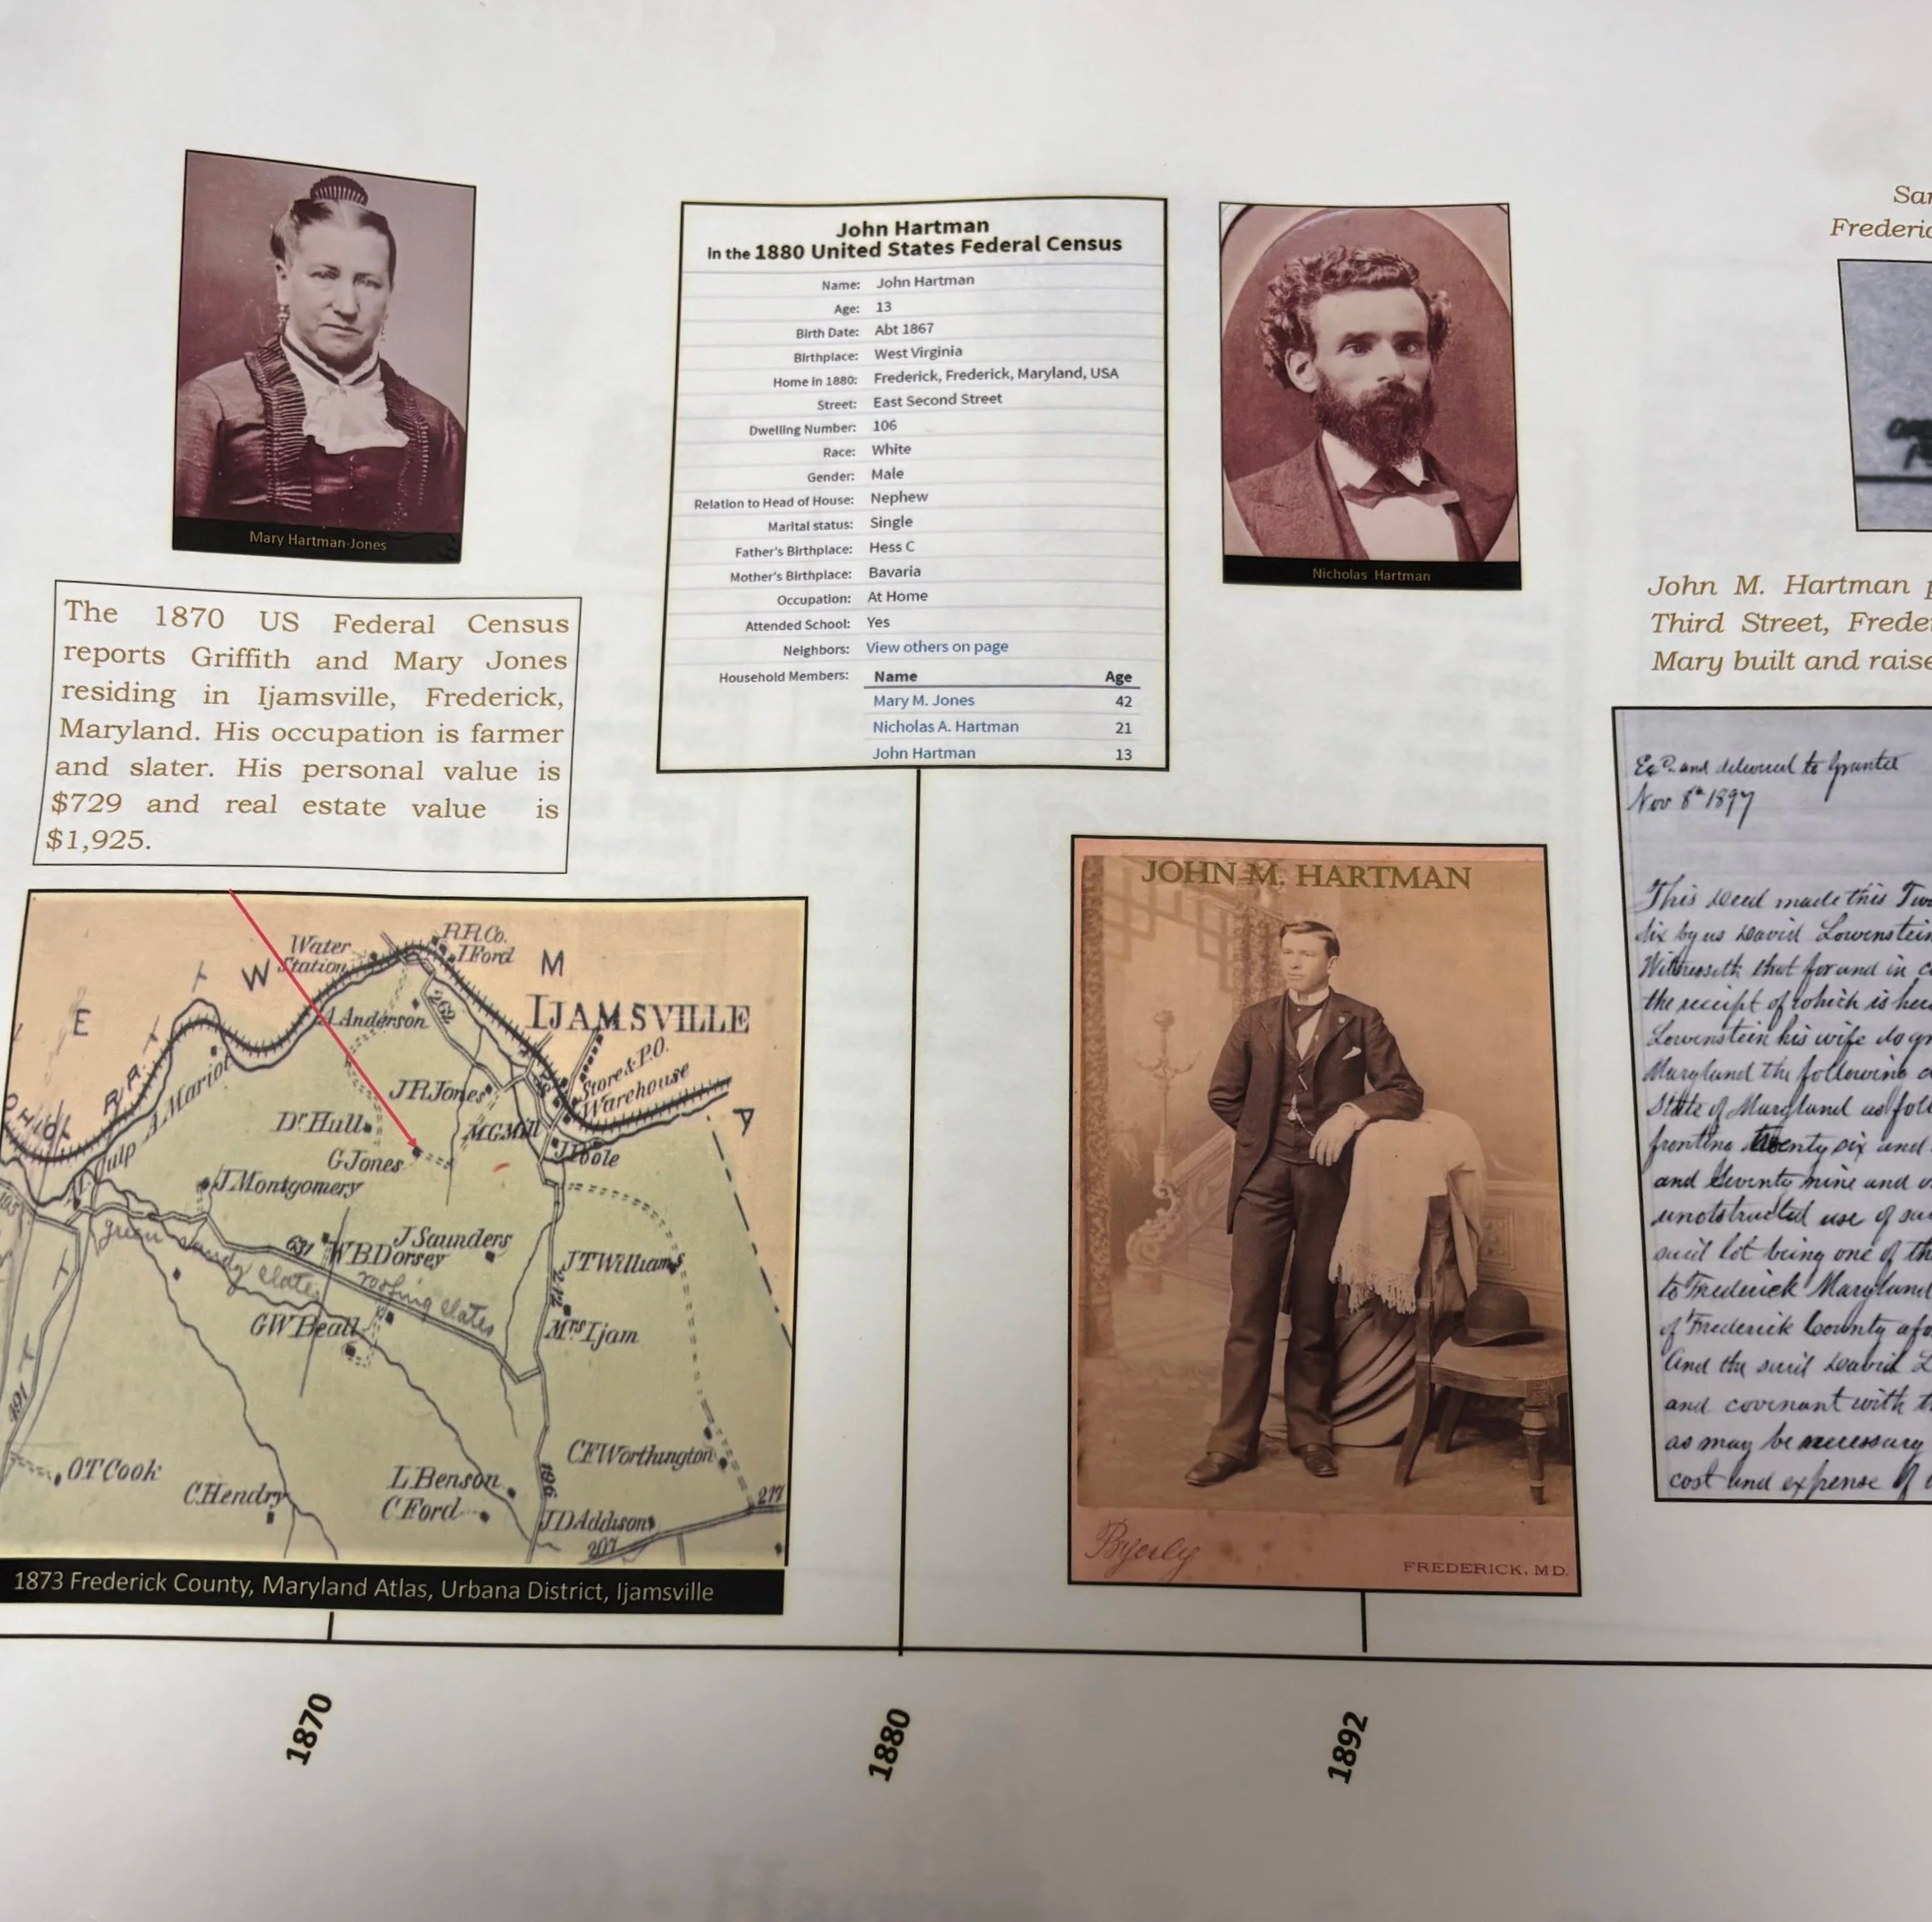 Mary Hartman-Jones
The 1870 US Federal Census
reports Griffith and Mary Jones
residing in Ijamsville, Frederick,
Maryland. His occupation is farmer
and slater. His personal value is
$729 and real estate value is
$1,925.
Water
Station
R.R.Co.
I Ford
W
M
E
IJAMSVILLE
A Anderson
262
R.R.
J R Jones
Store & P.O.
Warehouse
A Mariot
Dr Hull
M G Mill
G Jones
J Montgomery
green sandy slates
631
W B Dorsey
J Saunders
J T Williams
roofing slates
242
G W Beall
Mrs Ijam
491
O T Cook
C Hendry
L Benson
C Ford
C F Worthington
196
J D Addison
207
217
1873 Frederick County, Maryland Atlas, Urbana District, Ijamsville
John Hartman
in the 1880 United States Federal Census
Name: John Hartman
Age: 13
Birth Date: Abt 1867
Birthplace: West Virginia
Home in 1880: Frederick, Frederick, Maryland, USA
Street: East Second Street
Dwelling Number: 106
Race: White
Gender: Male
Relation to Head of House: Nephew
Marital status: Single
Father's Birthplace: Hess C
Mother's Birthplace: Bavaria
Occupation: At Home
Attended School: Yes
Neighbors: View others on page
Household Members: Name Age
Mary M. Jones 42
Nicholas A. Hartman 21
John Hartman 13
Nicholas Hartman
JOHN M. HARTMAN
Byerly
FREDERICK, MD.
John M. Hartman
Third Street,
Mary built and
and delivered to Grantee
Nov 8th 1897
This deed made this
six by us David Lowenstein
Witnesseth that for and in
the receipt of which is
Lowenstein his wife do
Maryland the following
State of Maryland as
fronting twenty six and
and Seventy nine and
unobstructed use of
said lot being one of
to Frederick Maryland
of Frederick County
And the said David
and covenant with
as may be necessary
cost and expense of
1870
1880
1892